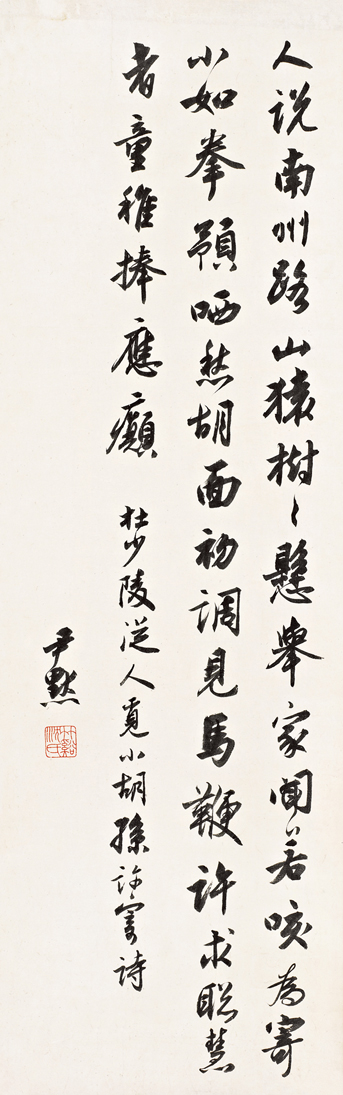 人说南州路山猿树〻懸舉家聞若咳為寄
小如拳預哂愁胡面初調見馬鞭許求聪慧
者童稚捧應癲
杜少陵從人覓小胡孫許寄詩
尹默
竹谿沈氏